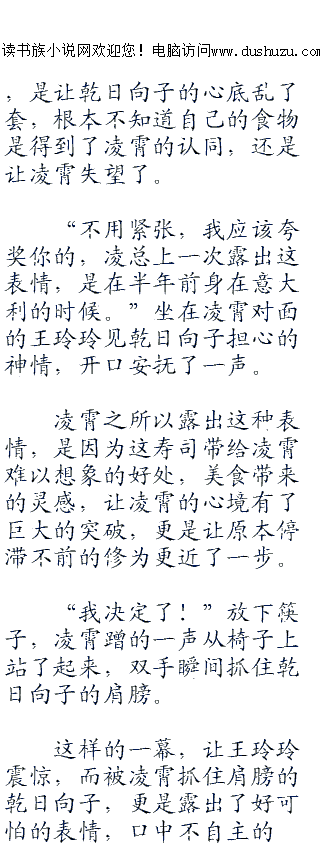 读书族小说网欢迎您！电脑访问www.dushuzu.com
，是让乾日向子的心底乱了
套，根本不知道自己的食物
是得到了凌霄的认同，还是
让凌霄失望了。
“不用紧张，我应该夸
奖你的，凌总上一次露出这
表情，是在半年前身在意大
利的时候。”坐在凌霄对面
的王玲玲见乾日向子担心的
神情，开口安抚了一声。
凌霄之所以露出这种表
情，是因为这寿司带给凌霄
难以想象的好处，美食带来
的灵感，让凌霄的心境有了
巨大的突破，更是让原本停
滞不前的修为更近了一步。
“我决定了！”放下筷
子，凌霄蹭的一声从椅子上
站了起来，双手瞬间抓住乾
日向子的肩膀。
这样的一幕，让王玲玲
震惊，而被凌霄抓住肩膀的
乾日向子，更是露出了好可
怕的表情，口中不自主的